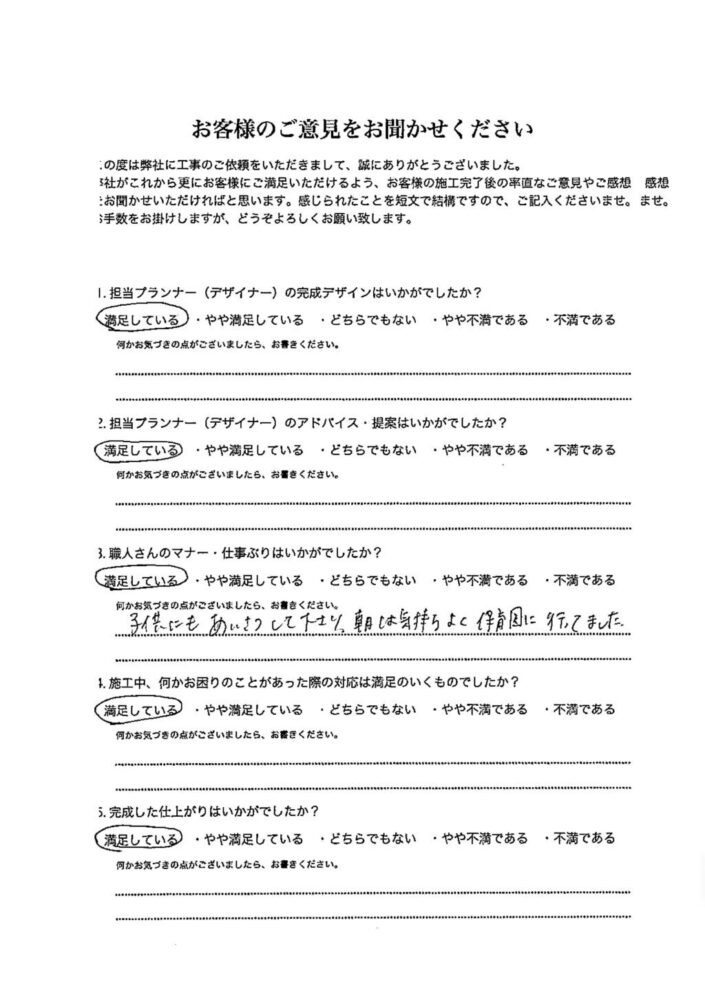 お客様のご意見をお聞かせください
この度は弊社に工事のご依頼をいただきまして、誠にありがとうございました。
弊社がこれから更にお客様にご満足いただけるよう、お客様の施工完了後の率直なご意見やご感想 感想
をお聞かせいただければと思います。感じられたことを短文で結構ですので、ご記入くださいませ。ませ。
お手数をお掛けしますが、どうぞよろしくお願い致します。
1. 担当プランナー（デザイナー）の完成デザインはいかがでしたか？
満足している ・やや満足している ・どちらでもない ・やや不満である ・不満である
何かお気づきの点がございましたら、お書きください。
2. 担当プランナー（デザイナー）のアドバイス・提案はいかがでしたか？
満足している ・やや満足している ・どちらでもない ・やや不満である ・不満である
何かお気づきの点がございましたら、お書きください。
3. 職人さんのマナー・仕事ぶりはいかがでしたか？
満足している ・やや満足している ・どちらでもない ・やや不満である ・不満である
何かお気づきの点がございましたら、お書きください。
子供にも あいさつして下さり、朝は気持ちよく 保育園に 行ってました.
4. 施工中、何かお困りのことがあった際の対応は満足のいくものでしたか？
満足している ・やや満足している ・どちらでもない ・やや不満である ・不満である
何かお気づきの点がございましたら、お書きください。
5. 完成した仕上がりはいかがでしたか？
満足している ・やや満足している ・どちらでもない ・やや不満である ・不満である
何かお気づきの点がございましたら、お書きください。